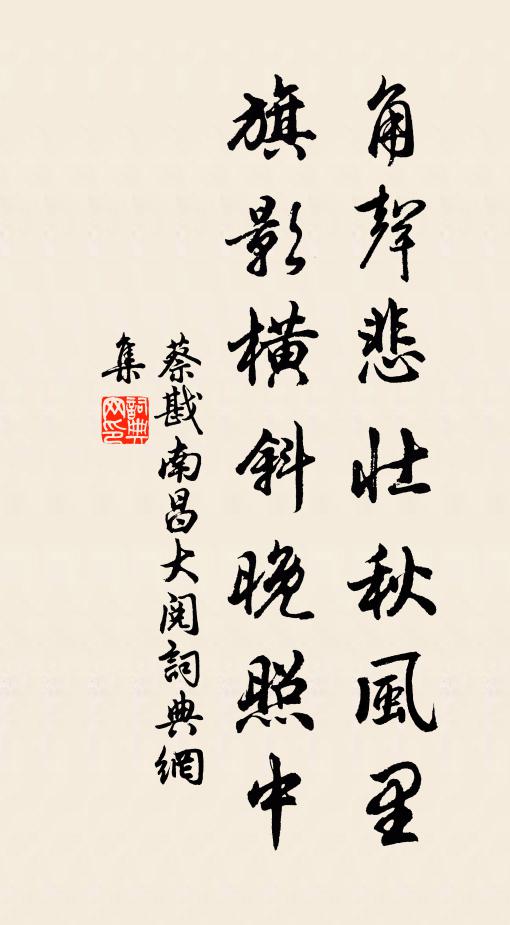 角聲悲壯秋風里
旗影橫斜晚照中
蔡戡南昌大閱詞典網
集
詞典
网印